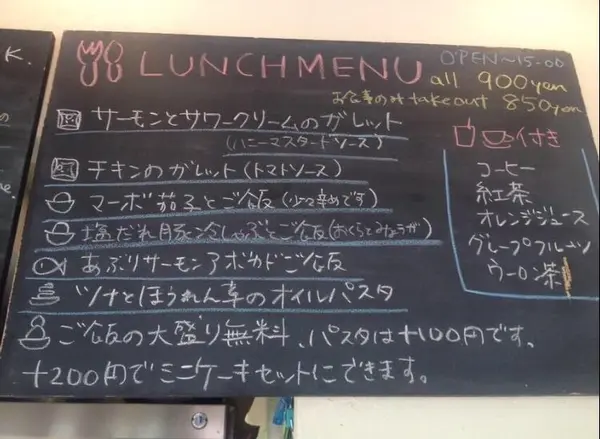 K.
LUNCH MENU
OPEN~15:00
all 900yen
お食事のみ take out 850yen
サーモンとサワークリームのガレット
(ハニーマスタードソース)
チキンのガレット(トマトソース)
マーボ茄子とご飯(少々辛めです)
塩だれ豚冷しゃぶとご飯(おくらとみょうが)
あぶりサーモンアボカドご飯
ツナとほうれん草のオイルパスタ
ご飯の大盛り無料、パスタは+100円です。
+200円でミニケーキセットにできます。
付き
コーヒー
紅茶
オレンジジュース
グレープフルーツ
ウーロン茶